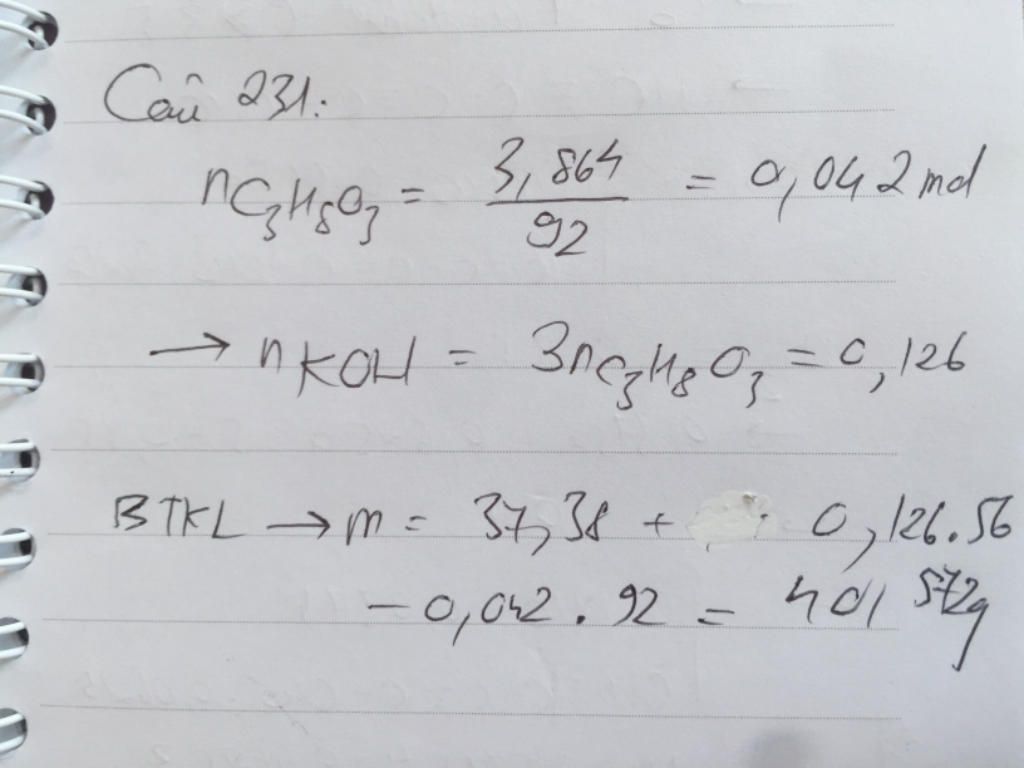 Câu 231:
nC₃H₈O₃ = 3,864/92 = 0,042 mol
→ nKOH = 3nC₃H₈O₃ = 0,126
BTKL → m = 37,38 + 0,126.56
- 0,042 . 92 = 40,572g